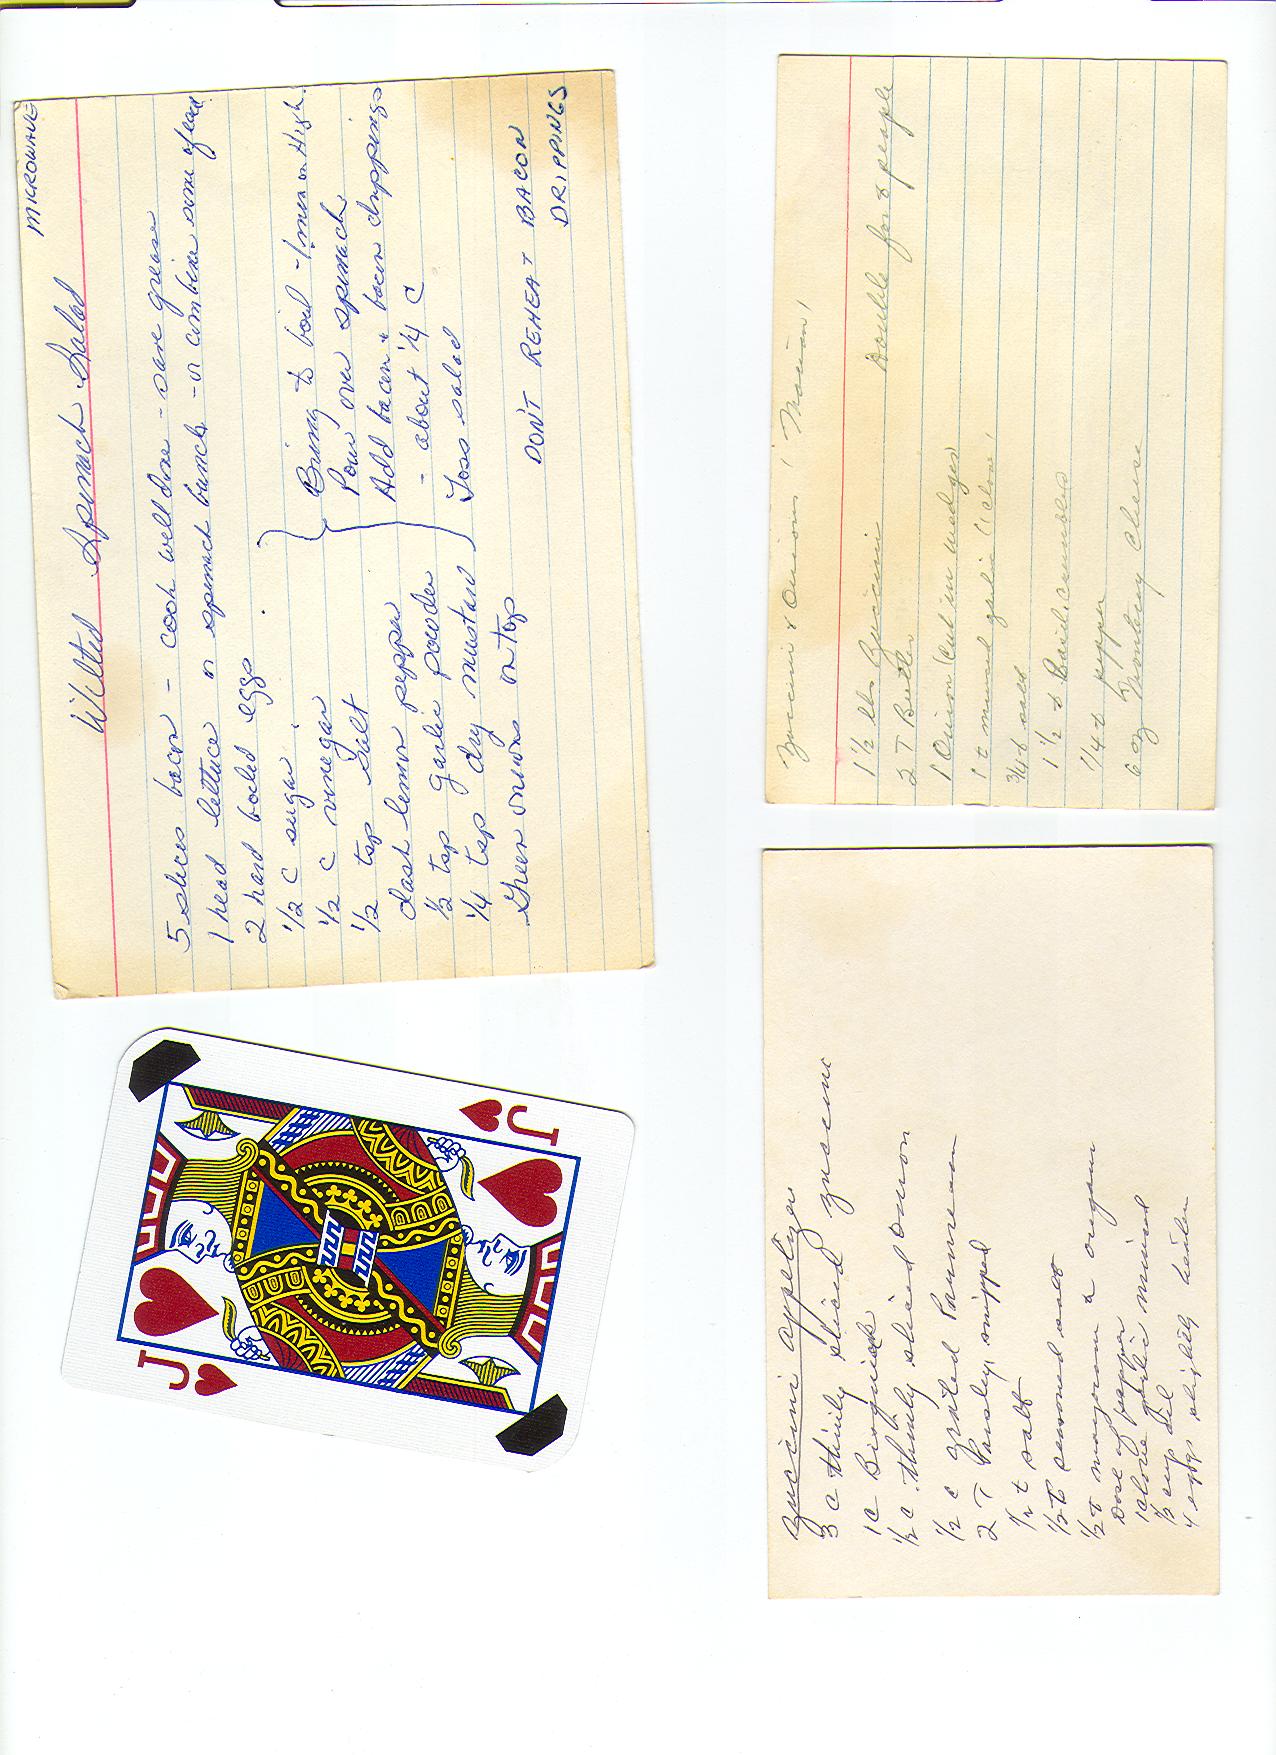 MICROWAVE
Wilted Spinach Salad
5 slices bacon - cook well done - save grease
1 head lettuce or spinach bunch - or combine some of each
2 hard boiled eggs
1/2 C sugar
1/2 C vinegar
1/2 tsp salt
dash lemon pepper
1/2 tsp garlic powder
1/4 tsp dry mustard
Green onions on top
Bring to boil - 1 min on High.
Pour over spinach
Add bacon & bacon drippings
- about 1/4 C
Toss salad
DON'T REHEAT BACON
DRIPPINGS
Zuccini & Onions
Double for 8 people
1 1/2 lbs Zuccini
2 T Butter
1 Onion (cut in wedges)
1 t minced garlic (1 clove)
3/4 t salt
1 1/2 t Basil, crumbled
1/4 t pepper
6 oz Monterey Cheese
Zuccini appetizer
3 c thinly sliced zuccini
1 c Bisquick
1/2 c thinly sliced onion
1/2 c grated Parmesan
2 T Parsley snipped
1/2 t salt
1/2 t seasoned salt
1/2 t marjoram or oregano
Dash of pepper
1 clove garlic minced
1/2 cup Oil
4 eggs slightly beaten
J
J